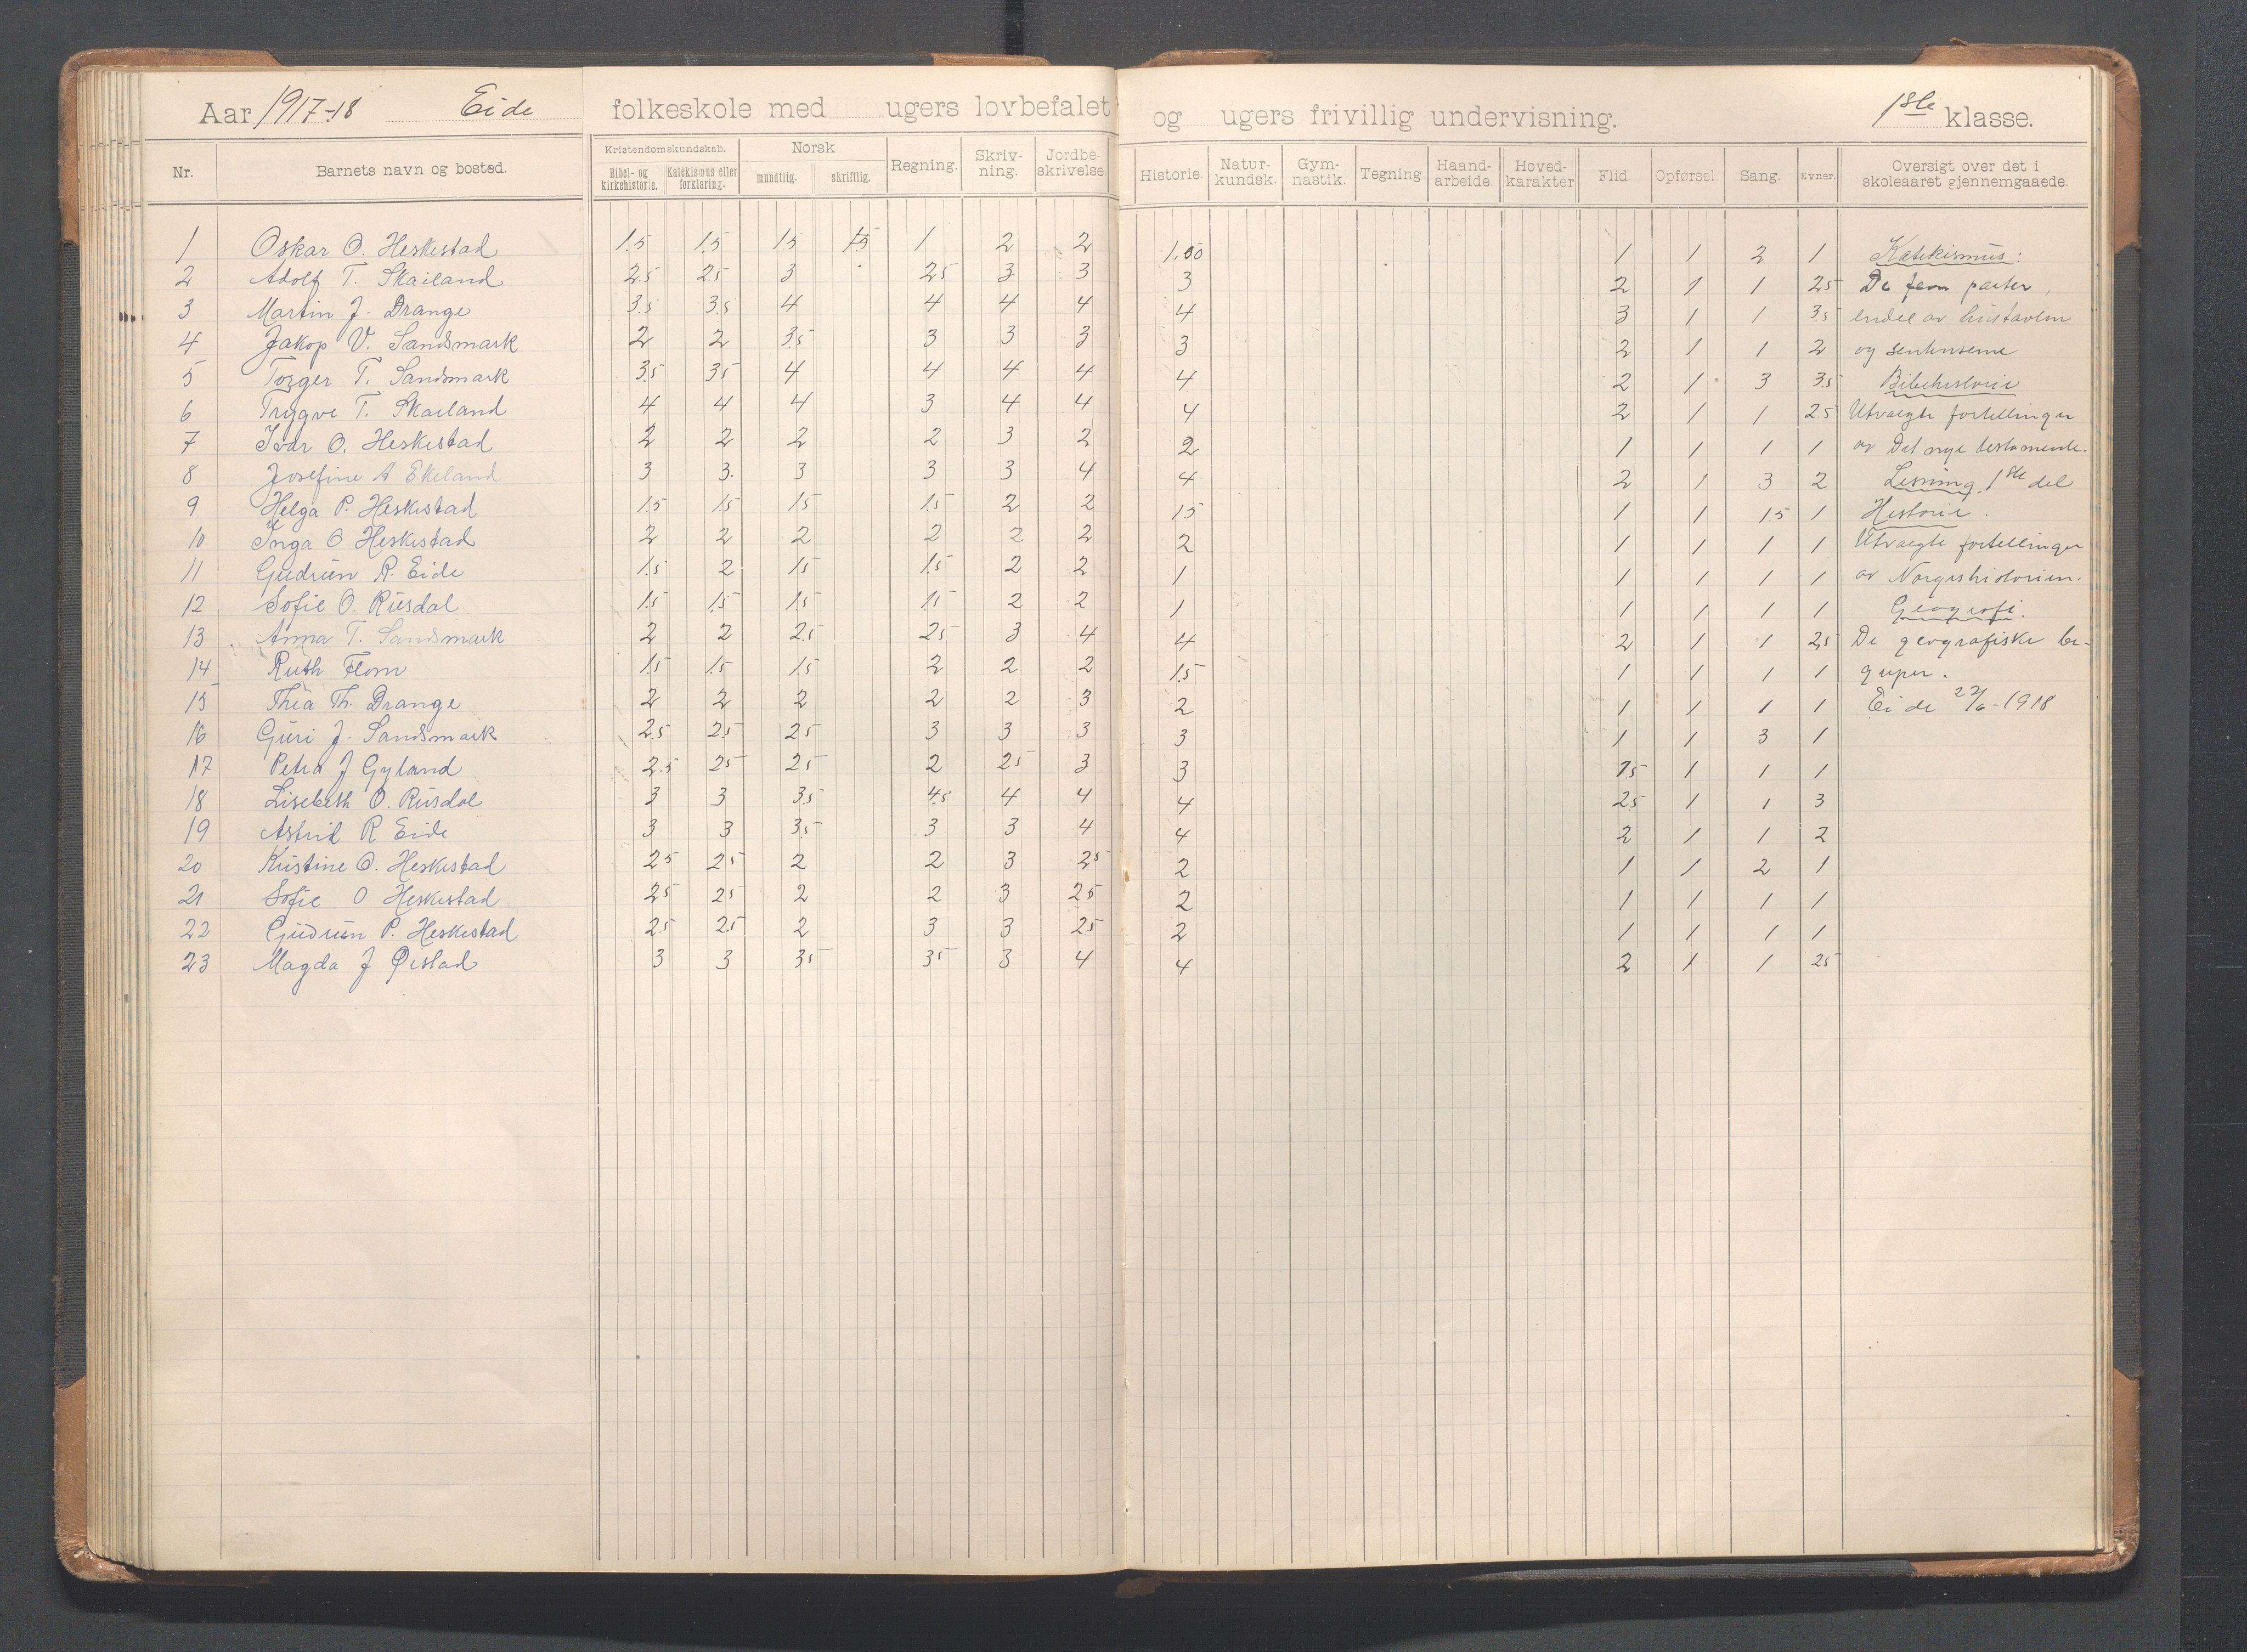 Aar 1917-18 Eide folkeskole med ugers lovbefalet og ugers frivillig undervisning. 1ste klasse.
Nr. Barnets navn og bosted. Kristendomskundskab. Bibel- og kirkehistorie. Katekismus eller forklaring. Norsk mundtlig. skriftlig. Regning. Skriv-ning. Jordbe-skrivelse. Historie. Natur-kundsk. Gym-nastik. Tegning Haand-arbeide. Hoved-karakter Flid Opførsel Sang. Evner. Oversigt over det i skoleaaret gjennemgaaede.
1 Oskar O. Heskestad 1.5 1.5 1.5 1.5 1 2 2 1.00 1 1 2 1 Katekismus:
2 Adolf T. Skailand 2.5 2.5 3 2.5 3 3 3 2 1 1 2.5 De fem parter,
3 Martin J. Drange 3.5 3.5 4 4 4 4 4 3 1 1 3.5 endel av hustavlen
4 Jakop V. Sandsmark 2 2 3.5 3 3 3 3 2 1 1 2 og sentenserne
5 Torger T. Sandsmark 3.5 3.5 4 4 4 4 4 2 1 3 3.5 Bibelhistorie
6 Trygve T. Skailand 4 4 4 3 4 4 4 2 1 1 2.5 Utvalgte fortellinger
7 Ivar O. Heskestad 2 2 2 2 3 2 2 1 1 1 1 av Det nye testamente.
8 Josefine A Ekeland 3 3. 3 3 3 4 4 2 1 3 2 Lesning 1ste del
9 Helga P. Heskestad 1.5 1.5 1.5 1.5 2 2 1.5 1 1 1.5 1 Historie.
10 Inga O Heskestad 2 2 2 2 2 2 2 1 1 1 1 Utvalgte fortellinger
11 Gudrun R. Eide 1.5 2 1.5 1.5 2 2 1 1 1 1 1 av Norgeshistorien.
12 Sofie O. Rusdal 1.5 1.5 1.5 1.5 2 2 1 1 1 1 1 Geografi.
13 Anna T. Sandsmark 2 2 2.5 2.5 3 4 4 2 1 1 2.5 De geografiske be-
14 Ruth Flom 1.5 1.5 1.5 2 2 2 1.5 1 1 1 1 greper.
15 Thea Th. Drange 2 2 2 2 2 3 2 1 1 1 1 Eide 22/6-1918
16 Guri J. Sandsmark 2.5 2.5 2.5 3 3 3 3 1 1 3 1
17 Petra J Gyland 2.5 2.5 2.5 2 2.5 3 3 1.5 1 1 1
18 Lisebeth O. Rusdal 3 3 3.5 4.5 4 4 4 2.5 1 1 3
19 Astrid R Eide 3 3 3.5 3 3 4 4 2 1 1 2
20 Kristine O. Heskestad 2.5 2.5 2 2 3 2.5 2 1 1 2 1
21 Sofie O Heskestad 2.5 2.5 2 2 3 2.5 2 1 1 1 1
22 Gudrun P. Heskestad 2.5 2.5 2 3 3 2.5 2 1 1 1 1
23 Magda J Øistad 3 3 3.5 3.5 3 4 4 2 1 1 2.5